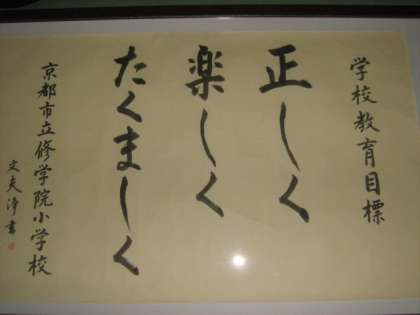 学校教育目標
正しく
楽しく
たくましく
京都市立修学院小学校
文夫浄書